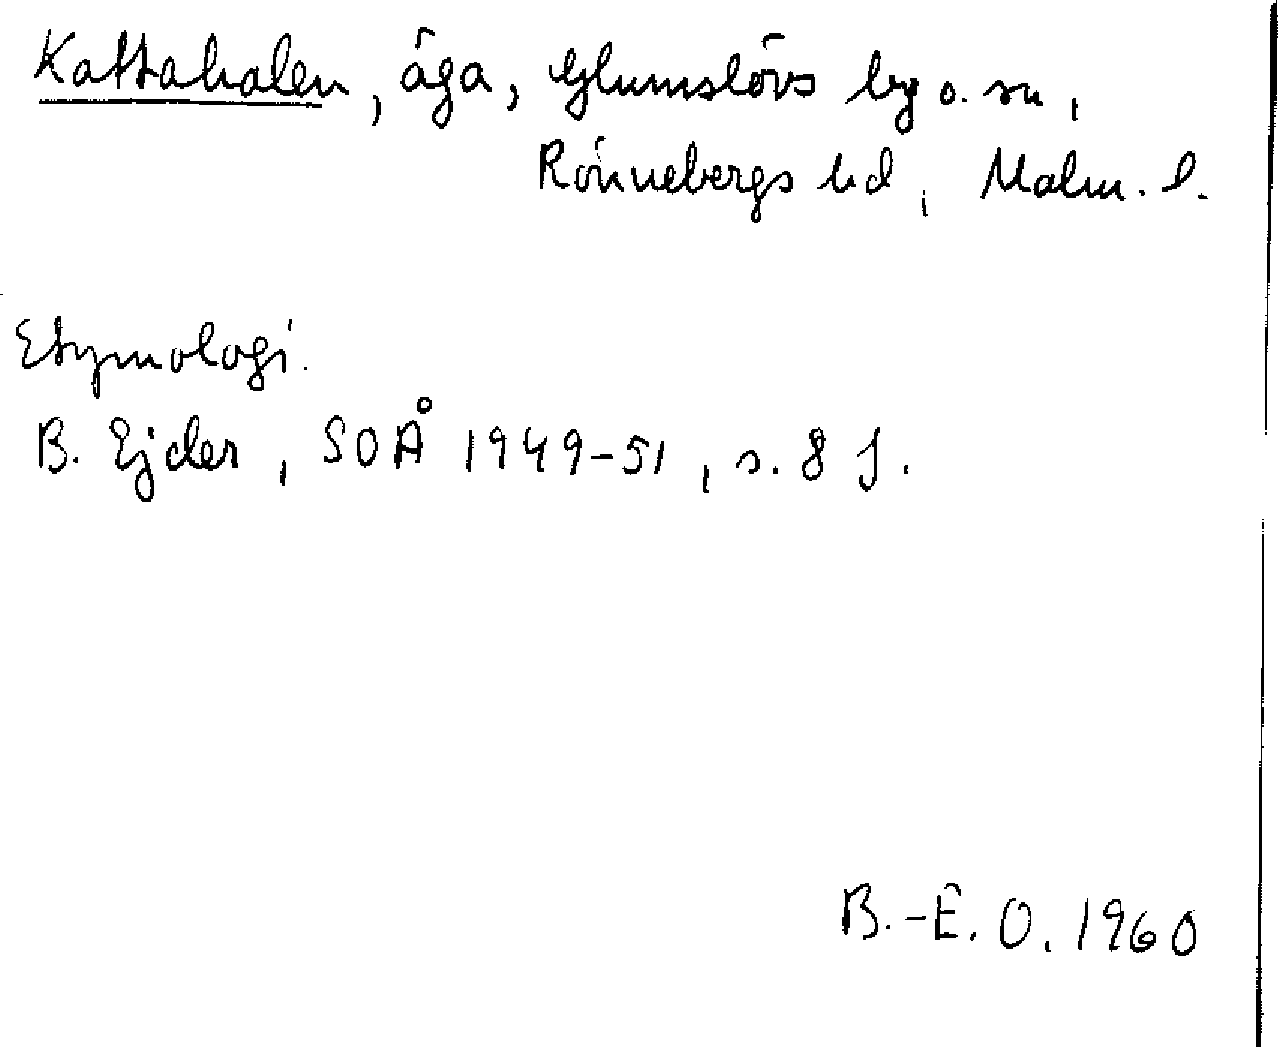 Kattahalen, äga, Glumslövs by o. sn,
Rönnebergs hd, Malm. l.
Etymologi.
B. Ejder, SOÅ 1949-51, s. 8 f.
B.-E. O. 1960